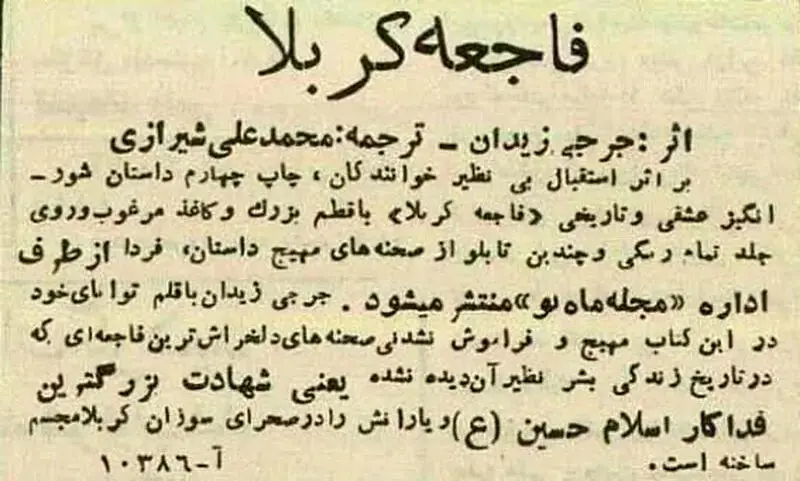 فاجعه کربلا
اثر: جرجی زیدان ـ ترجمه: محمدعلی شیرازی
بر اثر استقبال بی نظیر خوانندگان، چاپ چهارم داستان شور ـ
انگیز عشقی و تاریخی «فاجعه کربلا» باقطع بزرك و کاغذ مرغوب و روی
جلد تمام رنگی و چندین تابلو از صحنه های مهیج داستان، فردا از طرف
اداره «مجله ماه نو» منتشر میشود. جرجی زیدان باقلم توانای خود
در این کتاب مهیج و فراموش نشدنی صحنه های دلخراش ترین فاجعه ای که
در تاریخ زندگی بشر نظیر آن دیده نشده یعنی شهادت بزرگترین
فداکار اسلام حسین (ع) و یارانش را در صحرای سوزان کربلا مجسم
ساخته است.
آ-۱۰۳۸۶